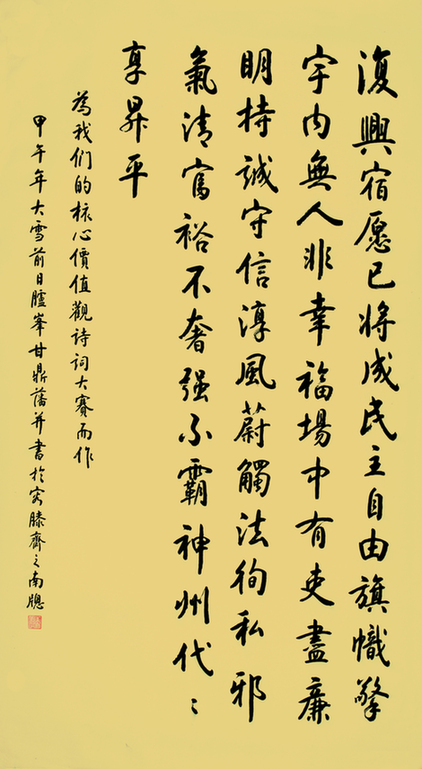 復興宿愿已將成民主自由旗幟擎
宇内無人非幸福場中有吏盡廉
明持誠守信淳風蔚觸法徇私邪
氣清富裕不奢强不霸神州代〻
享昇平
為我们的核心價值觀诗词大賽而作
甲午年大雪前日臚峯甘鼎藩并書於容膝齋之南牕